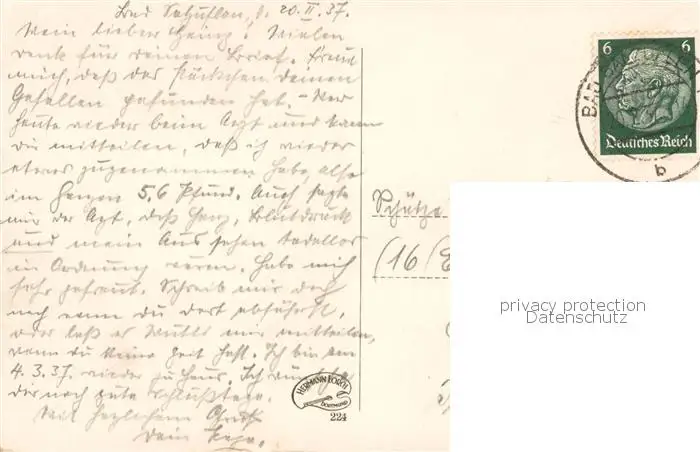 Bad Salzuflen, d. 20.II.37.
Mein lieber Heinz! Vielen
Dank für deinen Brief. Freut
mich, daß das Päckchen deinen
Gefallen gefunden hat. – War
heute wieder beim Arzt und kann
dir mitteilen, daß ich wieder
etwas zugenommen habe, also
im ganzen 5,6 Pfund. Auch sagte
mir der Arzt, daß Herz, Blutdruck
und mein Aussehen tadellos
in Ordnung wären. Habe mich
sehr gefreut. Schreib mir doch
noch wenn du dort abfährst,
oder laß es Mutti mir mitteilen,
wenn du keine Zeit hast. Ich bin am
4.3.37. wieder zu Haus. Ich
dir noch gute
Mit herzlichem Gruß
Dein
6 6
Deutsches Reich
BAD
b
Schütze
(16)
privacy protection
Datenschutz
HERMANN LORCH
DORTMUND
224